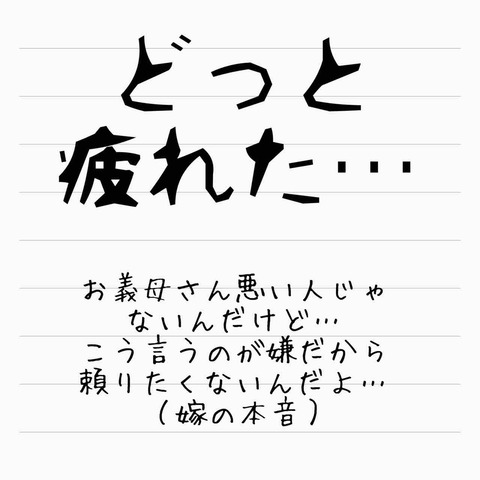 どっと
疲れた…
お義母さん悪い人じゃ
ないんだけど…
こう言うのが嫌だから
頼りたくないんだよ…
(嫁の本音)